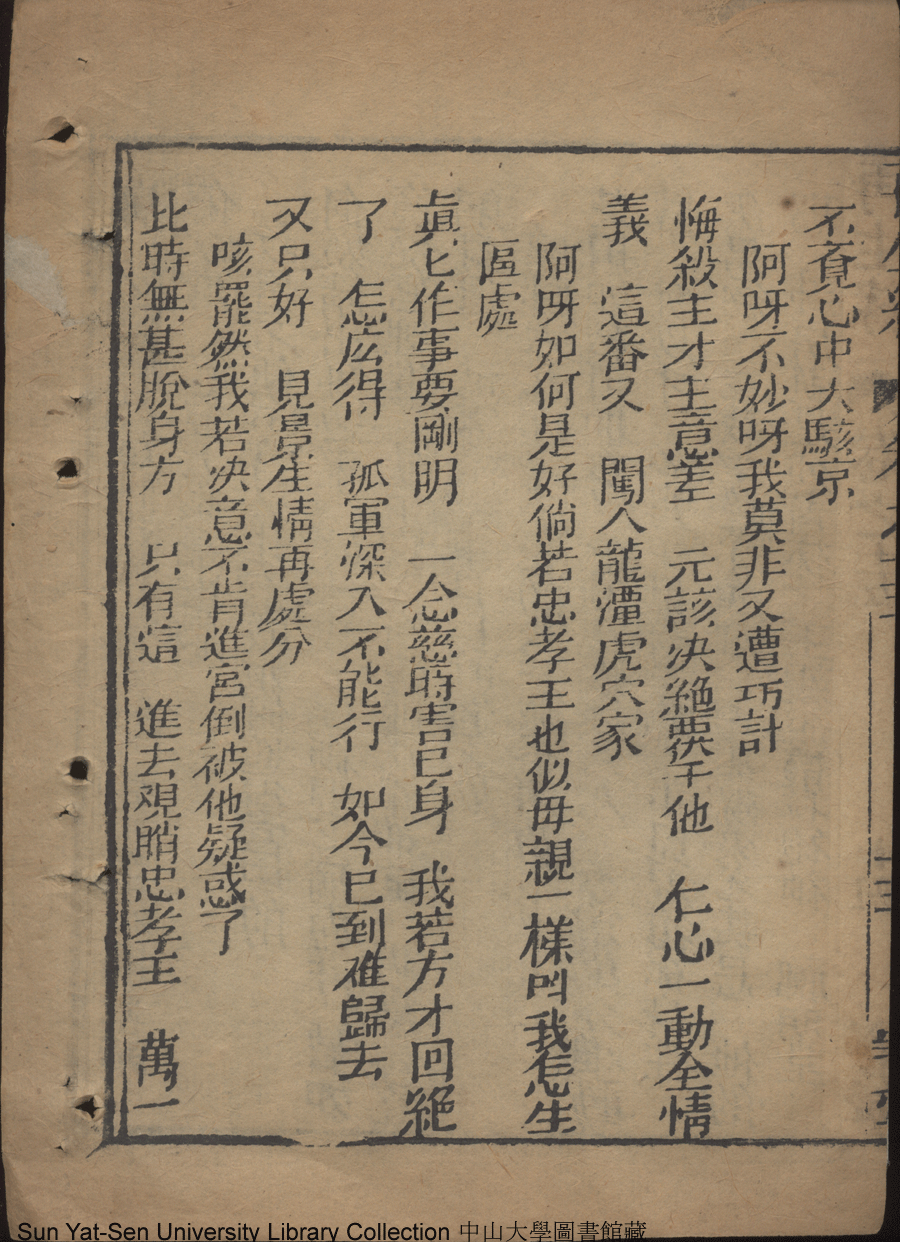 不覔心中大駭京
阿呀不妙呀我莫非又遭巧計
悔殺主才主意差　元該决絶他　仁心一動全情
義　這番又　闖人龍潭虎穴家
阿呀如何是好倘若忠孝王也似毋親一樣叫我怎生
區處
眞匕作事要剛明　一念慈時害已身　我若方才回絕
了　怎広得　孤軍深入不能行　如今已到难歸去
又只好　見景生情再處分
咳罷然我若决意不肯進宮倒被他疑惑了
比時無甚脫身方　只有這　進去覌䀯忠孝王　萬一
Sun Yat-Sen University Library Collection 中山大學圖書館藏